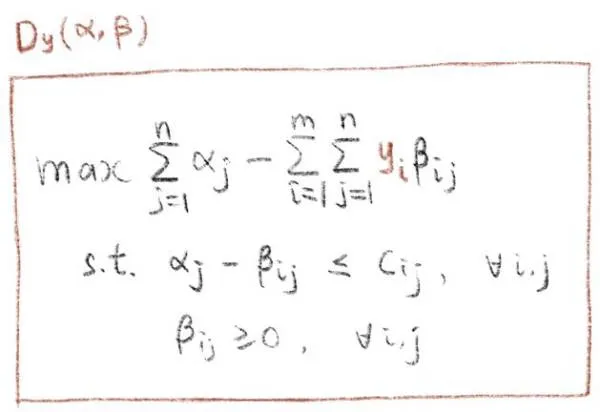 Dy(α, β)
max ∑_{j=1}^{n} αj − ∑_{i=1}^{m} ∑_{j=1}^{n} yi βij
s.t. αj − βij ≤ Cij, ∀i,j
βij ≥ 0, ∀i,j